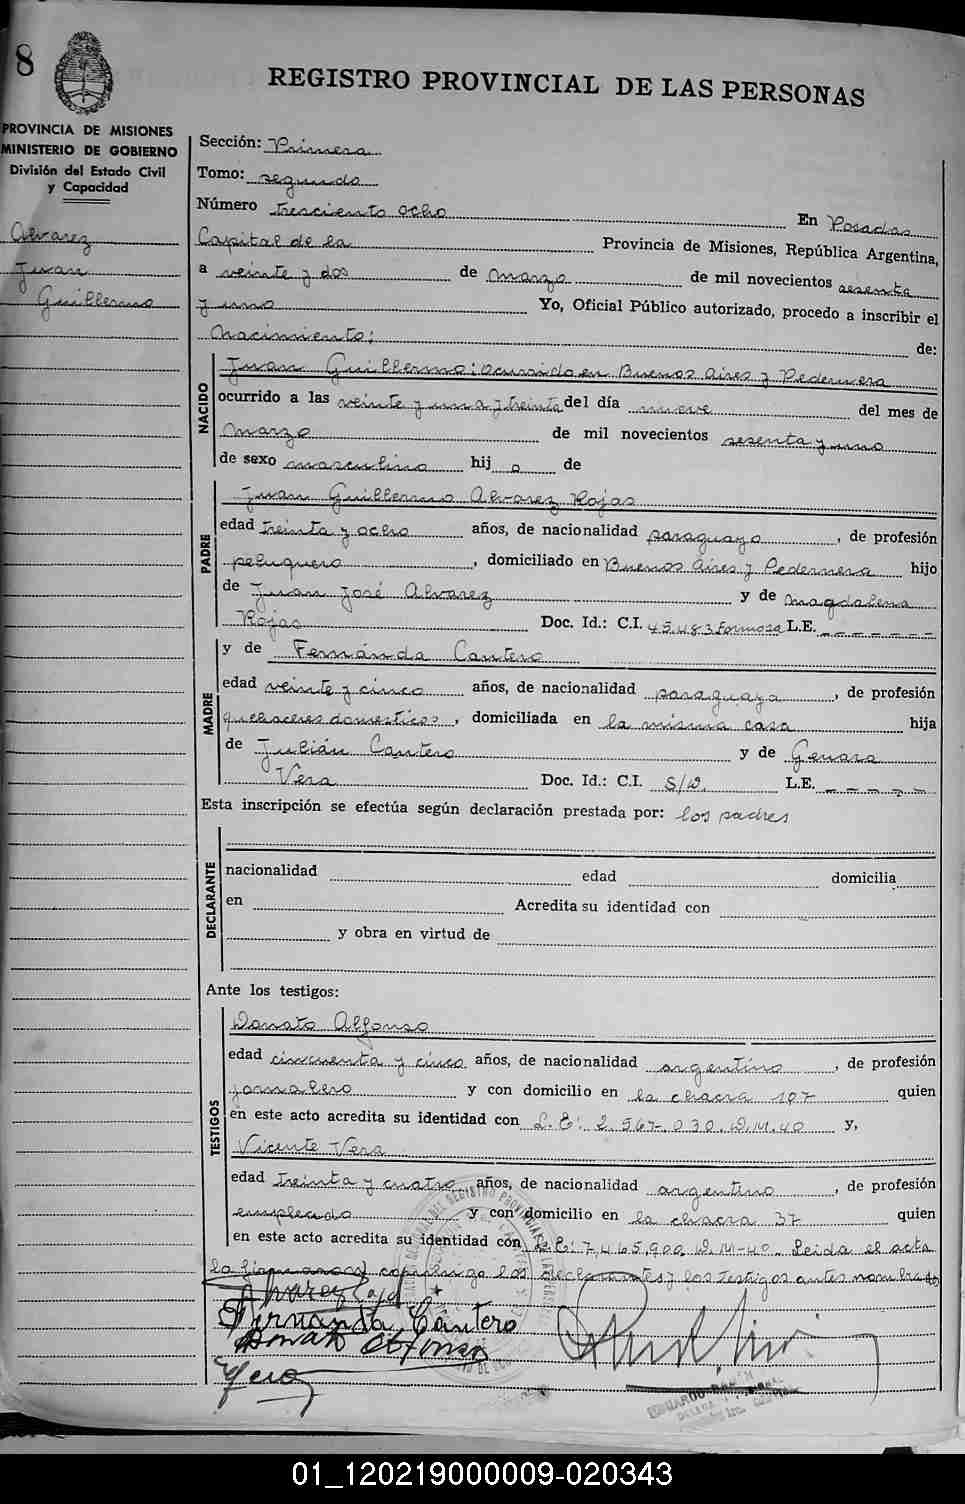 8
REGISTRO PROVINCIAL DE LAS PERSONAS
PROVINCIA DE MISIONES
MINISTERIO DE GOBIERNO
División del Estado Civil
y Capacidad
Alvarez
Juan
Guillermo
Sección: Primera
Tomo: segundo
Número tresciento ocho En Posadas
Capital de la Provincia de Misiones, República Argentina,
a veinte y dos de marzo de mil novecientos sesenta
y uno Yo, Oficial Público autorizado, procedo a inscribir el
Nacimiento: de:
NACIDO
Juan Guillermo: ocurrido en Buenos Aires y Pedernera
ocurrido a las veinte y una y treinta del día nueve del mes de
marzo de mil novecientos sesenta y uno
de sexo masculino hij o de
PADRE
Juan Guillermo Alvarez Rojas
edad treinta y ocho años, de nacionalidad paraguayo, de profesión
peluquero, domiciliado en Buenos Aires y Pedernera hijo
de Juan José Alvarez y de Magdalena
Rojas Doc. Id.: C.I. 45.483 Formosa L.E.
MADRE
y de Fernánda Cantero
edad veinte y cinco años, de nacionalidad paraguaya, de profesión
quehaceres domesticos, domiciliada en la misma casa hija
de Julián Cantero y de Genara
Vera Doc. Id.: C.I. S/D. L.E.
Esta inscripción se efectúa según declaración prestada por: los padres
DECLARANTE
nacionalidad edad domicilia
en Acredita su identidad con
y obra en virtud de
Ante los testigos:
TESTIGOS
Donato Alfonso
edad cincuenta y cinco años, de nacionalidad argentino, de profesión
jornalero y con domicilio en la chacra 107 quien
en este acto acredita su identidad con L.E: 2.567.030.D.M.40 y,
Vicente Vera
edad treinta y cuatro años, de nacionalidad argentino, de profesión
empleado y con domicilio en la chacra 37 quien
en este acto acredita su identidad con L.E: 7.465.900 D.M-40. Leida el acta
la firmaron conmigo los declarantes y los testigos antes nombrados
Alvarez Rojas
Fernánda Cántero
Donato Alfonso
Vera
01_120219000009-020343